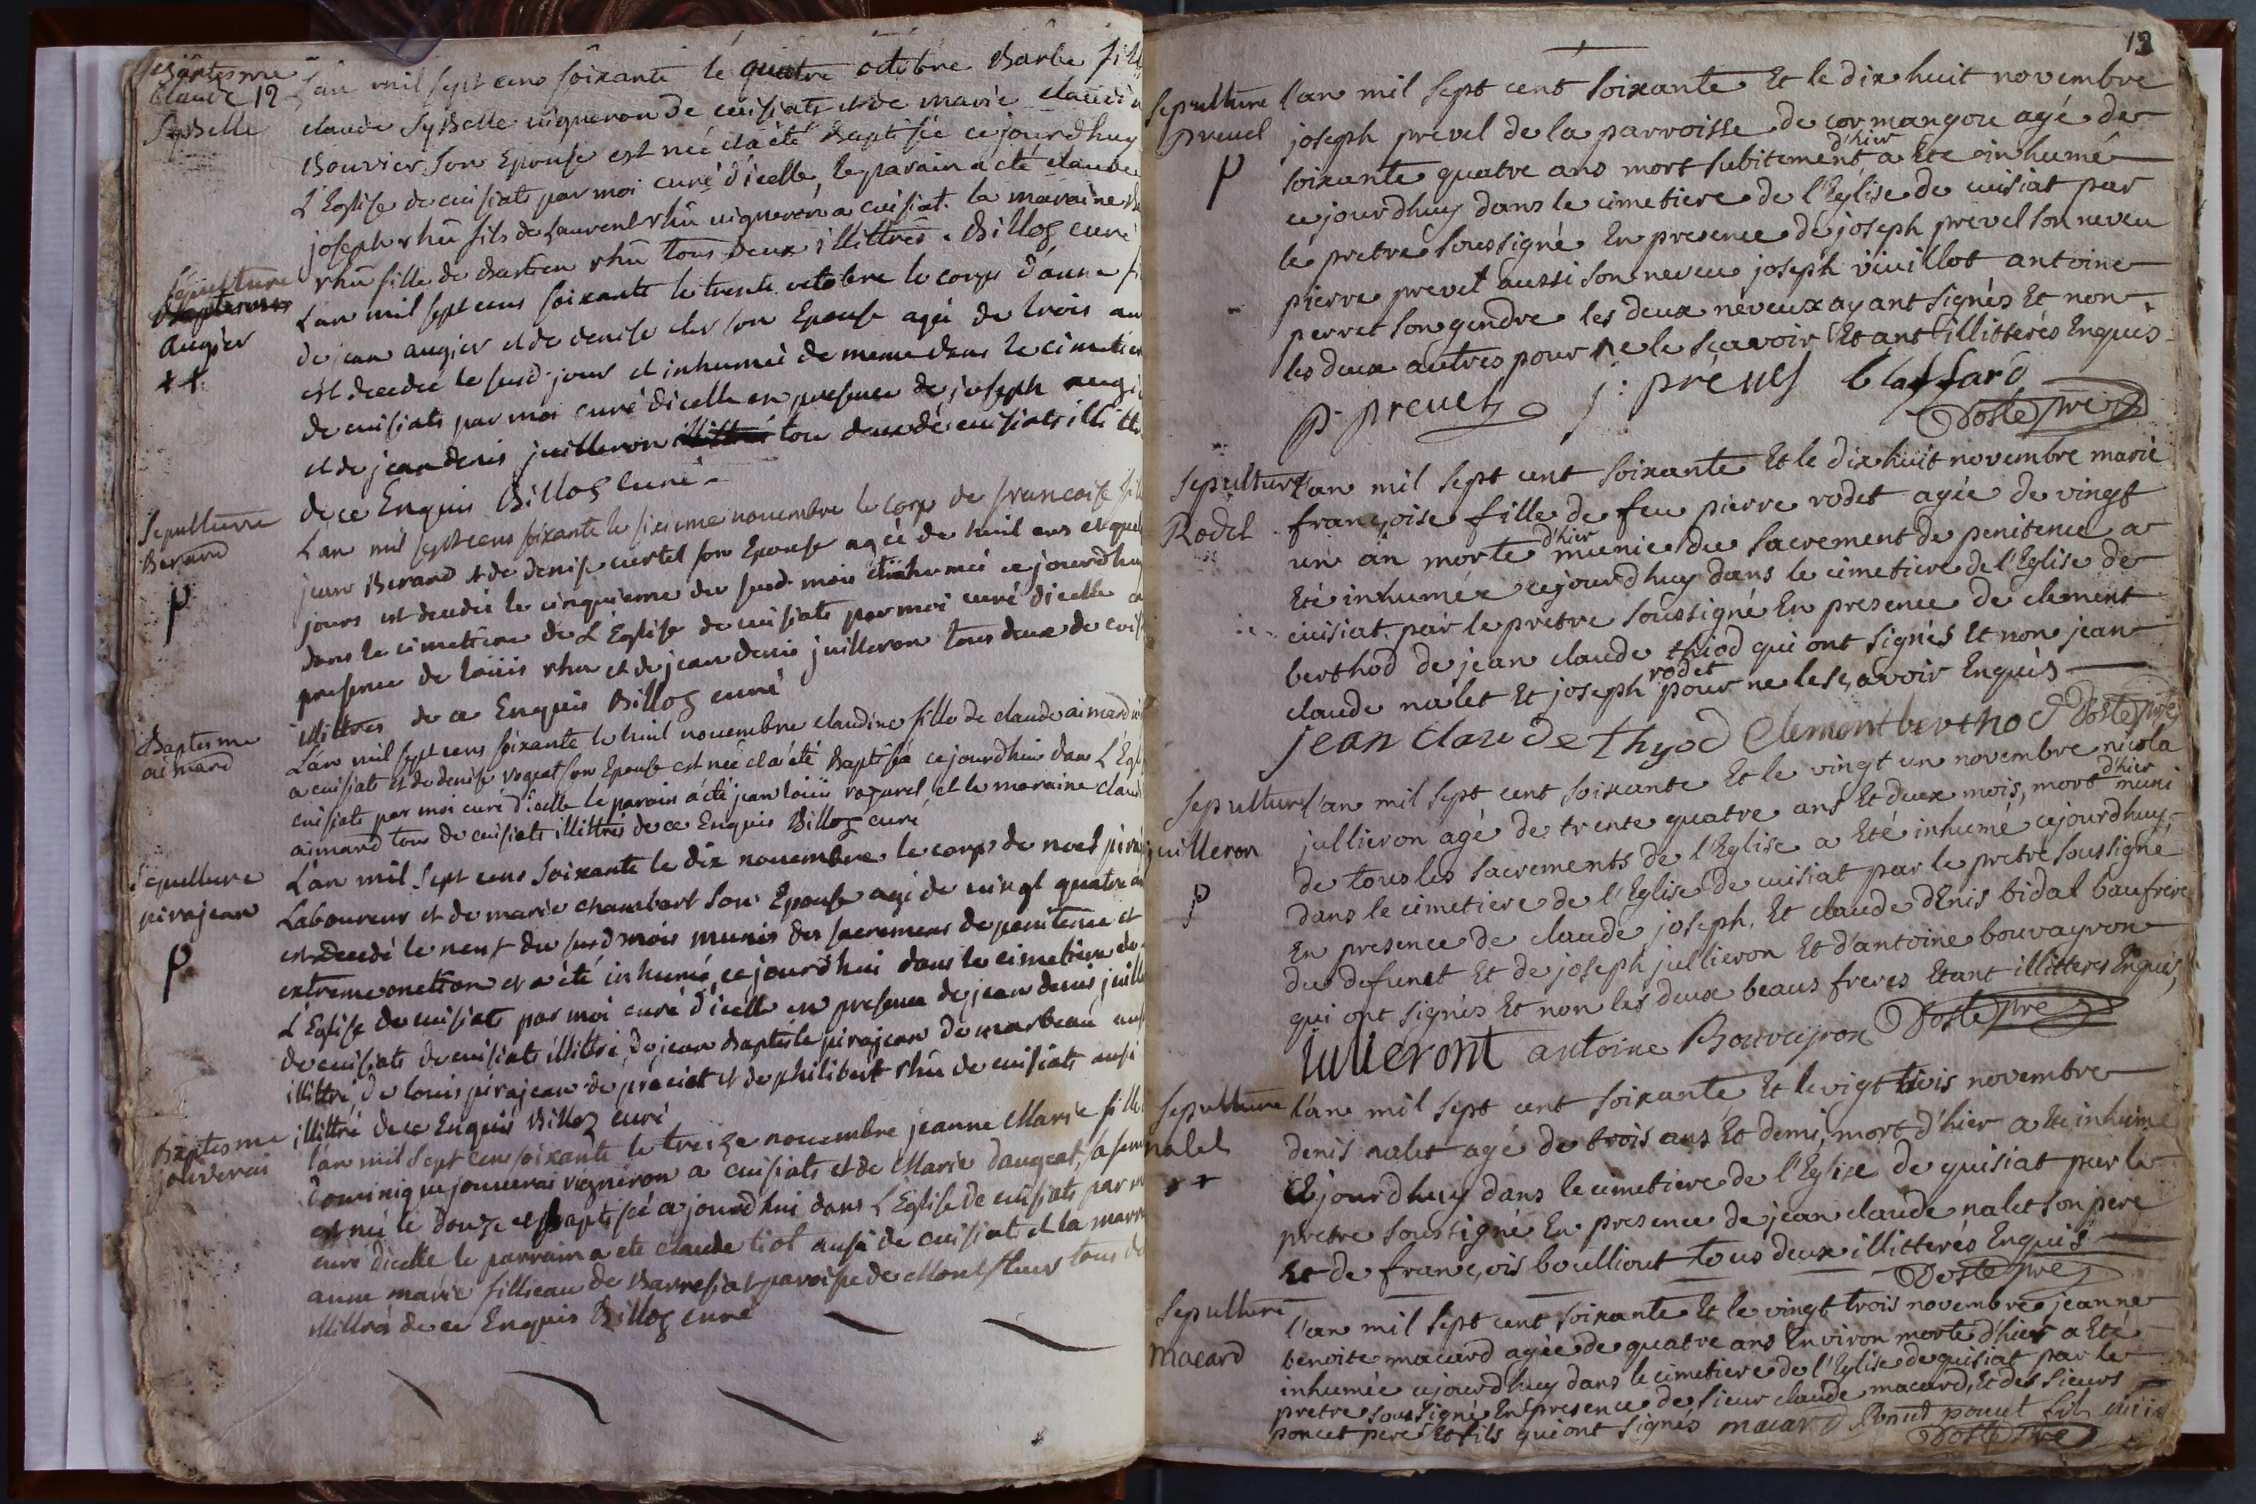 Baptesme
claude 12
Sybelle
L'an mil sept cens soixante le quatre octobre Barbe fille
claude Sybelle vigneron de cuisiats et de marie claudi
Bouvier son Epouse est née et a été Baptisée ce jourdhuy
L'Eglise de cuisiats par moi curé d'icelle, le parain a eté claude
joseph rhu fils de Laurent rhu vigneron a cuisiat. la maraine
rhu fille de Bastien rhu tous deux illittrés. Billoz curé
Sepulture
Augier
++
L'an mil sept cens soixante le trente octobre le corps d'anne fi
de jean augier et de denise son Epouse agée de trois an
est decedée le susd. jour et inhumée de meme dans le cimetier
de cuisiats par moi curé d'icelle en presence de joseph augi
et de jean denis juilleron tous deux de cuisiats illitt
de ce Enquis Billoz curé
Sepulture
Berard
P
L'an mil sept cens soixante le sixieme novembre le corps de francoise fill
jean Berard et de denise curtel son Epouse agée de huit ans et quel
jours est decedée le cinquieme du susd. mois et inhumée ce jourdhuy
dans le cimetiere de L'Eglise de cuisiats par moi curé dicelle en
presence de louis rhu et de jean denis juilleron tous deux de cuis
illittres de ce Enquis Billoz curé
Baptesme
aimard
L'an mil sept cens soixante le huit novembre claudine fille de claude aimard
a cuisiats et de denise son Epouse est née et a été Baptisée ce jourdhui dans L'Egl
cuisiats par moi curé d'icelle le parain a été jean louis et la maraine claud
aimard tous de cuisiats illittrés de ce Enquis Billoz curé
Sepulture
pirajean
P
L'an mil sept cens soixante le dix novembre le corps de noel piraj
Laboureur et de marie chambart son Epouse agé de vingt quatre an
est decedé le neuf du susd mois munis des sacremens de penitence et
extreme onction et a été inhumé ce jourd'hui dans le cimetiere de
L'Eglise de cuisiats par moi curé d'icelle en presence de jean denis juill
de cuisiats de cuisiats illittré, de jean Baptiste pirajean de marbeau aus
illittré, de louis pirajean de préciat et de philibert rhu de cuisiats ausi
illittré de ce Enquis Billoz curé
Baptesme
jouverai
L'an mil sept cens soixante le treize novembre jeanne Marie fille
dominique jouverai vigneron a cuisiats et de Marie daugeat, sa fem
est née le douze et Baptisée a jourdhui dans L'Eglise de cuisiats par m
curé dicelle le parrain a ete claude tiot ausi de cuisiats et la marr
anne marie fillieau de Barresiat paroisse de Montfleur tous de
illittrés de ce Enquis Billoz curé
12
Sepulture
prevel
P
l'an mil sept cent soixante Et le dix huit novembre
joseph prevel de la parroisse de cormangou agé de
d'hier
soixante quatre ans mort subitement a Ete inhumé
cejourdhuy dans le cimetiere de l'Eglise de cuisiat par
le pretre soussigné En presence de joseph prevel son neveu
pierre prevel aussi son neveu joseph vuillot antoine
perret son gendre les deux neveux ayant signés Et non
les deux autres pour ne le scavoir Etant illitterés Enquis
p. prevel j: prevel blassard
Doste ptre
Sepulture
Rodet
l'an mil sept cent soixante Et le dix huit novembre marie
françoise fille de feu pierre rodet agée de vingt
d'hier
un an morte munie du sacrement de penitence a
Eté inhumée cejourdhuy dans le cimetiere de l'Eglise de
cuisiat par le pretre soussigné En presence de clement
berthod de jean claude thiod qui ont signés Et non jean
rodet
claude nalet Et joseph pour ne le sçavoir Enquis
jean claude thyod Clement berthod Doste ptre
Sepulture
juilleron
P
l'an mil sept cent soixante Et le vingt un novembre nicola
d'hier
jullieron agé de trente quatre ans Et deux mois, mort muni
de tous les sacrements de l'Eglise a Eté inhumé cejourdhuy
dans le cimetiere de l'Eglise de cuisiat par le pretre soussigné
En presence de claude joseph, Et claude dEnis bidal baufrere
du defunct Et de joseph jullieron Et d'antoine bouvayron
qui ont signés Et non les deux beaus freres Etant illitteres Enquis,
Iulieront antoine Bouvayron Doste ptre
Sepulture
nalet
++
l'an mil sept cent soixante Et le vigt trois novembre
denis nalet agé de trois ans Et demi, mort d'hier a Ete inhumé
cejourdhuy dans le cimetiere de l'Eglise de quisiat par le
pretre soussigné En presence de jean claude nalet son pere
Et de françois boulliout tous deux illitterés Enquis
Doste ptre
Sepulture
macard
l'an mil sept cent soixante Et le vingt trois novembre jeanne
benoite macard agée de quatre ans Environ morte d'hier a Eté
inhumée cejourdhuy dans le cimetiere de l'Eglise de quisiat par le
pretre soussigné En presence de sieur claude macard, Et des sieurs
poncet pere Et fils qui ont signés macard poncet fils
Doste ptre